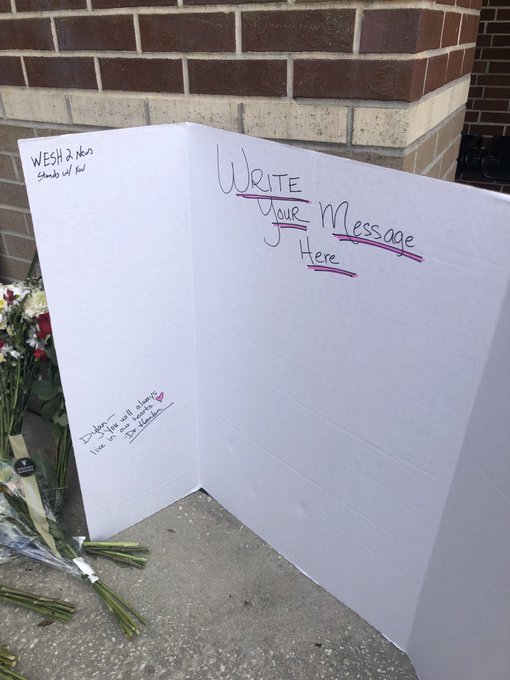 WESH 2 News
Stands w/ You
WRITE
Your Message
Here
Dylan—
You will always
live in our hearts.